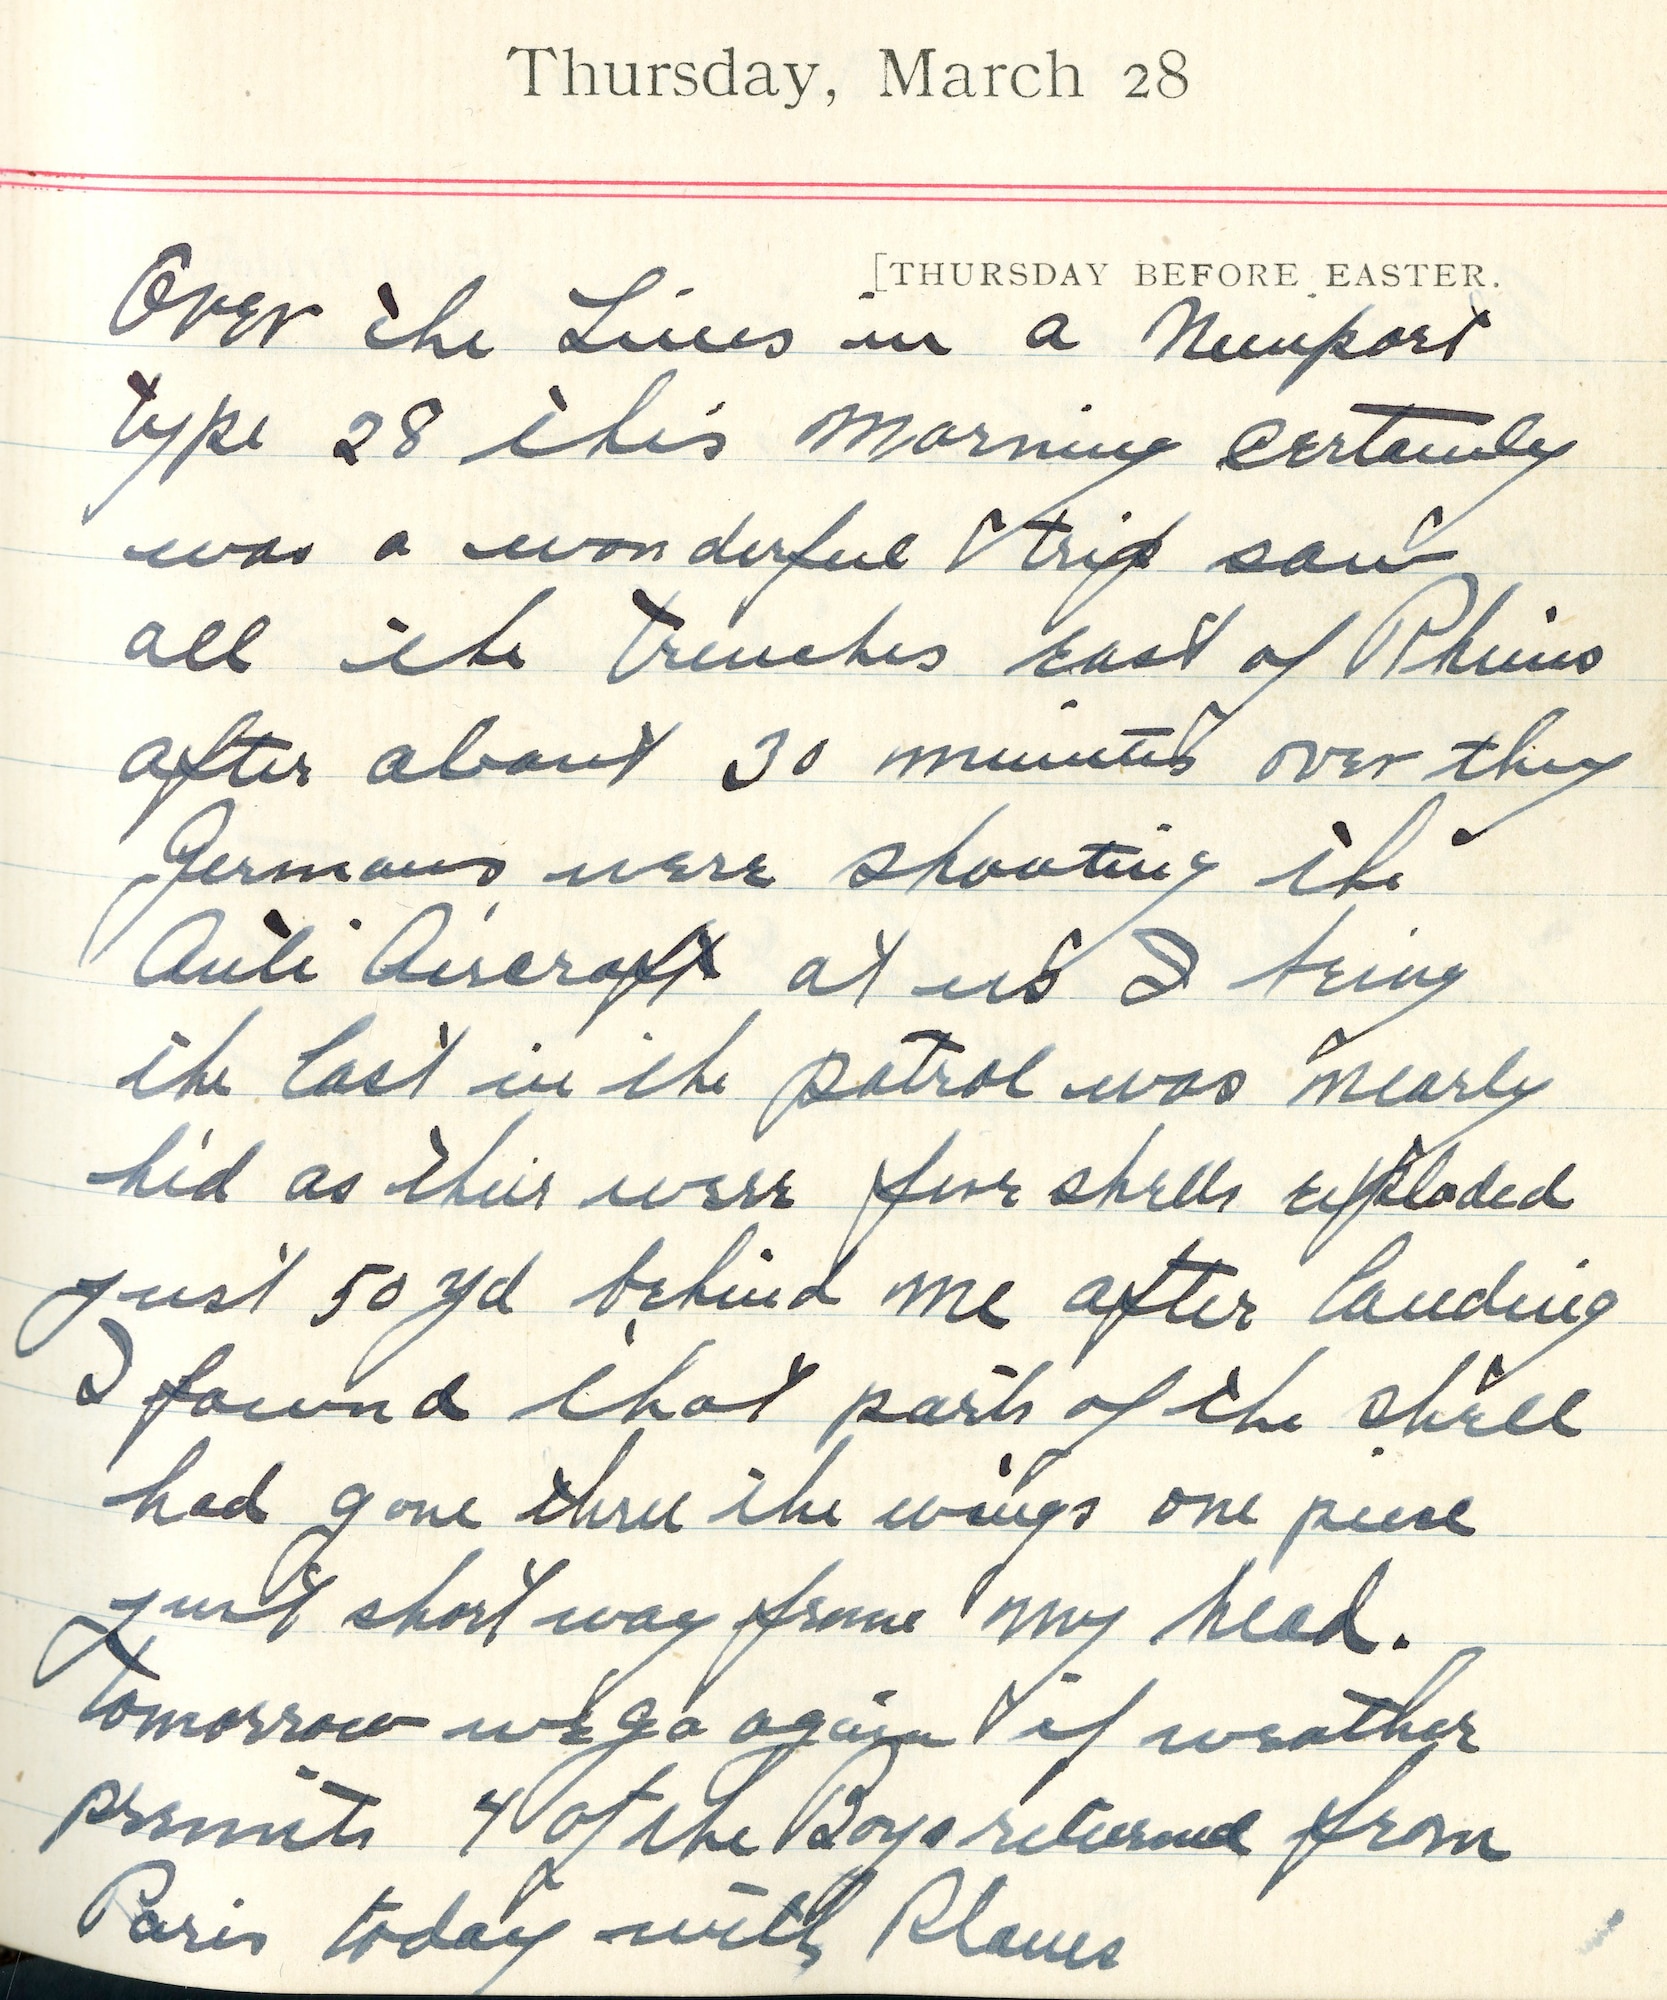 Thursday, March 28
[THURSDAY BEFORE EASTER.
Over the Lines in a Neuport
type 28 this morning certainly
was a wonderful trip saw
all the trenches east of Rheims
after about 30 minutes over they
Germans were shooting the
Anti Aircraft at us I being
the last in the patrol was nearly
hid as their were five shells exploded
just 50 yd behind me after landing
I found that parts of the shell
had gone thru the wings one piece
just short way from my head.
Tomorrow we go again if weather
permits 4 of the Boys returned from
Paris today with Planes